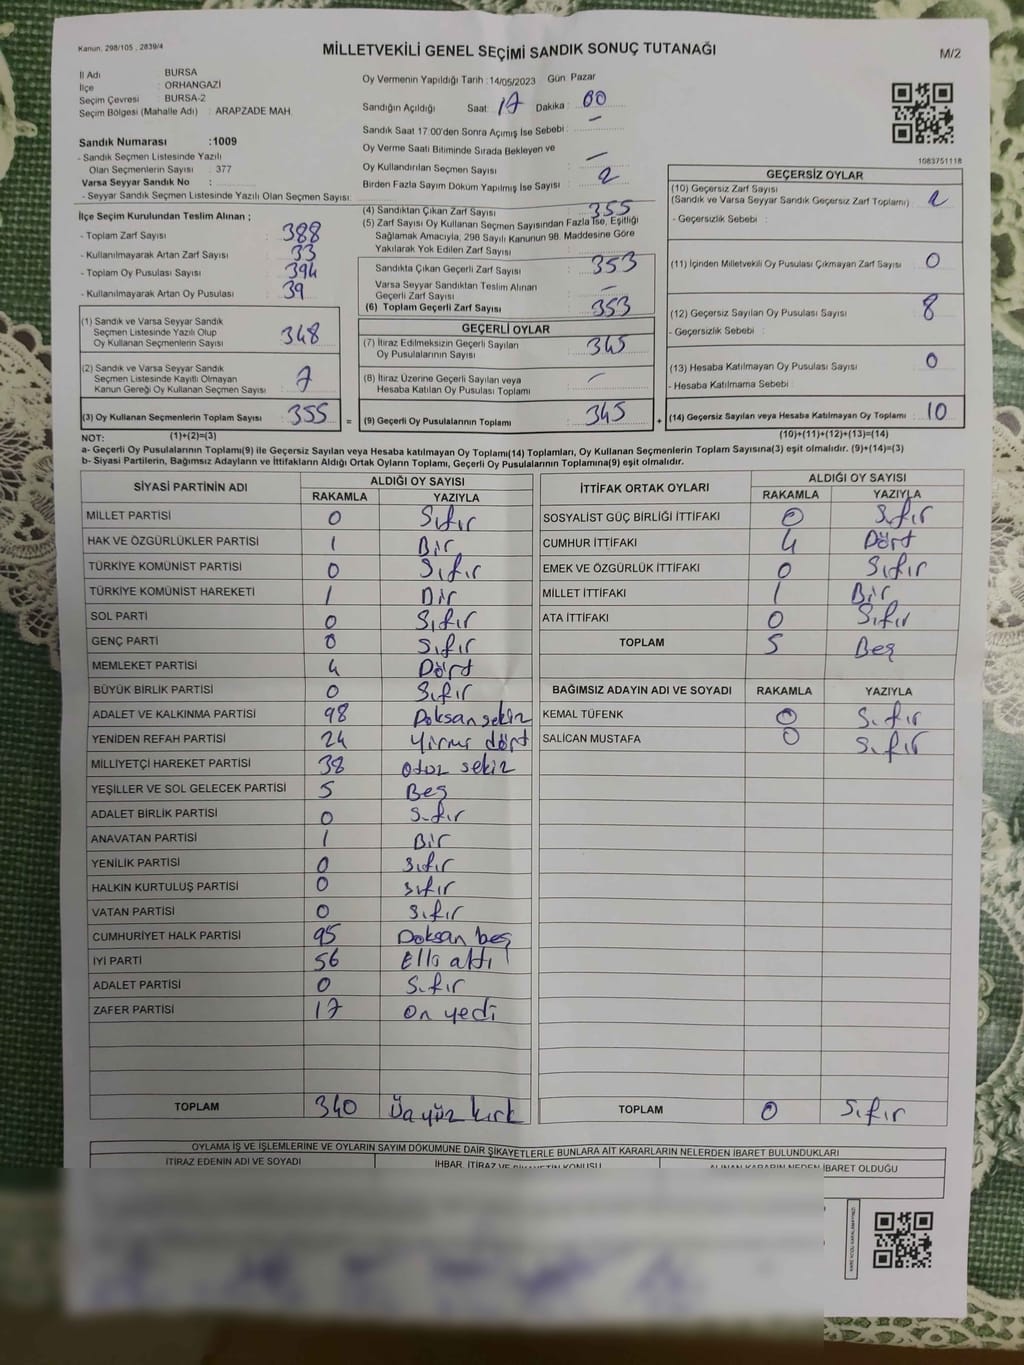 Kanun, 298/105 , 2839/4
MİLLETVEKİLİ GENEL SEÇİMİ SANDIK SONUÇ TUTANAĞI
M/2
İl Adı : BURSA
İlçe : ORHANGAZİ
Seçim Çevresi : BURSA-2
Seçim Bölgesi (Mahalle Adı) : ARAPZADE MAH
Sandık Numarası :1009
- Sandık Seçmen Listesinde Yazılı
Olan Seçmenlerin Sayısı : 377
Varsa Seyyar Sandık No :
- Seyyar Sandık Seçmen Listesinde Yazılı Olan Seçmen Sayısı:
Oy Vermenin Yapıldığı Tarih :14/05/2023 Gün: Pazar
Sandığın Açıldığı Saat: 17 Dakika : 00
Sandık Saat 17:00'den Sonra Açımış İse Sebebi : –
Oy Verme Saati Bitiminde Sırada Bekleyen ve
Oy Kullandırılan Seçmen Sayısı –
Birden Fazla Sayım Döküm Yapılmış İse Sayısı : 2
1083751118
İlçe Seçim Kurulundan Teslim Alınan ;
- Toplam Zarf Sayısı : 388
- Kullanılmayarak Artan Zarf Sayısı : 33
- Toplam Oy Pusulası Sayısı : 394
- Kullanılmayarak Artan Oy Pusulası : 39
(1) Sandık ve Varsa Seyyar Sandık
Seçmen Listesinde Yazılı Olup
Oy Kullanan Seçmenlerin Sayısı : 348
(2) Sandık ve Varsa Seyyar Sandık
Seçmen Listesinde Kayıtlı Olmayan
Kanun Gereği Oy Kullanan Seçmen Sayısı : 7
(3) Oy Kullanan Seçmenlerin Toplam Sayısı : 355
(4) Sandıktan Çıkan Zarf Sayısı : 355
(5) Zarf Sayısı Oy Kullanan Seçmen Sayısından Fazla İse, Eşitliği
Sağlamak Amacıyla, 298 Sayılı Kanunun 98. Maddesine Göre
Yakılarak Yok Edilen Zarf Sayısı :
Sandıkta Çıkan Geçerli Zarf Sayısı : 353
Varsa Seyyar Sandıktan Teslim Alınan
Geçerli Zarf Sayısı : –
(6) Toplam Geçerli Zarf Sayısı : 353
GEÇERLİ OYLAR
(7) İtiraz Edilmeksizin Geçerli Sayılan
Oy Pusulalarının Sayısı : 345
(8) İtiraz Üzerine Geçerli Sayılan veya
Hesaba Katılan Oy Pusulası Toplamı : –
= (9) Geçerli Oy Pusulalarının Toplamı : 345
GEÇERSİZ OYLAR
(10) Geçersiz Zarf Sayısı
(Sandık ve Varsa Seyyar Sandık Geçersiz Zarf Toplamı) : 2
- Geçersizlik Sebebi :
(11) İçinden Milletvekili Oy Pusulası Çıkmayan Zarf Sayısı : 0
(12) Geçersiz Sayılan Oy Pusulası Sayısı : 8
- Geçersizlik Sebebi :
(13) Hesaba Katılmayan Oy Pusulası Sayısı : 0
- Hesaba Katılmama Sebebi :
+ (14) Geçersiz Sayılan veya Hesaba Katılmayan Oy Toplamı : 10
NOT: (1)+(2)=(3)
(10)+(11)+(12)+(13)=(14)
a- Geçerli Oy Pusulalarının Toplamı(9) ile Geçersiz Sayılan veya Hesaba katılmayan Oy Toplamı(14) Toplamları, Oy Kullanan Seçmenlerin Toplam Sayısına(3) eşit olmalıdır. (9)+(14)=(3)
b- Siyasi Partilerin, Bağımsız Adayların ve İttifakların Aldığı Ortak Oyların Toplamı, Geçerli Oy Pusulalarının Toplamına(9) eşit olmalıdır.
SİYASİ PARTİNİN ADI ALDIĞI OY SAYISI
RAKAMLA YAZIYLA
MİLLET PARTİSİ 0 Sıfır
HAK VE ÖZGÜRLÜKLER PARTİSİ 1 Bir
TÜRKİYE KOMÜNİST PARTİSİ 0 Sıfır
TÜRKİYE KOMÜNİST HAREKETİ 1 Bir
SOL PARTİ 0 Sıfır
GENÇ PARTİ 0 Sıfır
MEMLEKET PARTİSİ 4 Dört
BÜYÜK BİRLİK PARTİSİ 0 Sıfır
ADALET VE KALKINMA PARTİSİ 98 Doksan sekiz
YENİDEN REFAH PARTİSİ 24 Yirmi dört
MİLLİYETÇİ HAREKET PARTİSİ 38 Otuz sekiz
YEŞİLLER VE SOL GELECEK PARTİSİ 5 Beş
ADALET BİRLİK PARTİSİ 0 Sıfır
ANAVATAN PARTİSİ 1 Bir
YENİLİK PARTİSİ 0 sıfır
HALKIN KURTULUŞ PARTİSİ 0 sıfır
VATAN PARTİSİ 0 sıfır
CUMHURİYET HALK PARTİSİ 95 Doksan beş
İYİ PARTİ 56 Elli altı
ADALET PARTİSİ 0 Sıfır
ZAFER PARTİSİ 17 On yedi
TOPLAM 340 Üç yüz kırk
İTTİFAK ORTAK OYLARI ALDIĞI OY SAYISI
RAKAMLA YAZIYLA
SOSYALİST GÜÇ BİRLİĞİ İTTİFAKI 0 Sıfır
CUMHUR İTTİFAKI 4 Dört
EMEK VE ÖZGÜRLÜK İTTİFAKI 0 Sıfır
MİLLET İTTİFAKI 1 Bir
ATA İTTİFAKI 0 Sıfır
TOPLAM 5 Beş
BAĞIMSIZ ADAYIN ADI VE SOYADI RAKAMLA YAZIYLA
KEMAL TÜFENK 0 Sıfır
SALİCAN MUSTAFA 0 Sıfır
TOPLAM 0 Sıfır
OYLAMA İŞ VE İŞLEMLERİNE VE OYLARIN SAYIM DÖKÜMÜNE DAİR ŞİKAYETLERLE BUNLARA AİT KARARLARIN NELERDEN İBARET BULUNDUKLARI
İTİRAZ EDENİN ADI VE SOYADI İHBAR, İTİRAZ VE ŞİKAYETİN KONUSU ALINAN KARARIN NEDEN İBARET OLDUĞU